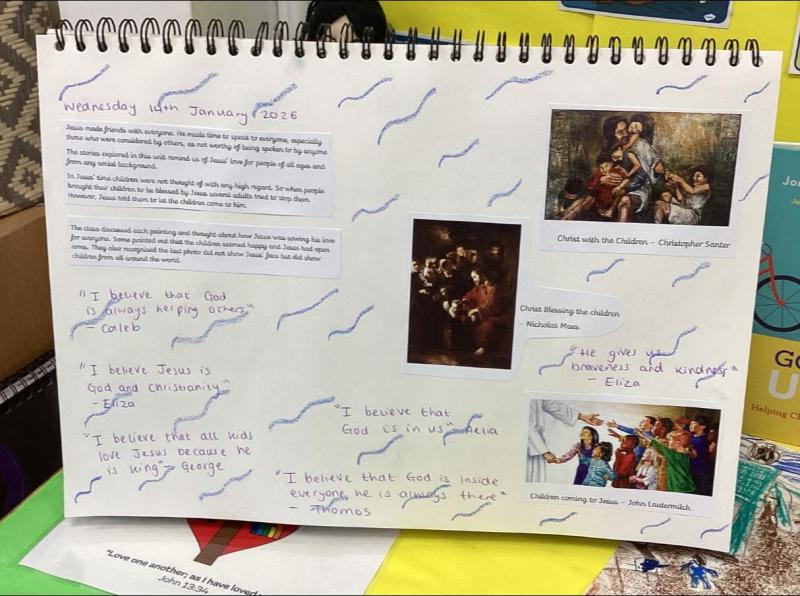 Wednesday 14th January 2026
Jesus made friends with everyone. He made time to speak to everyone, especially
those who were considered by others, as not worthy of being spoken to by anyone
The stories explored in this unit remind us of Jesus' love for people of all ages and
from any social background.
In Jesus' time children were not thought of with any high regard. So when people
brought their children to be blessed by Jesus several adults tried to stop them.
However, Jesus told them to let the children come to him.
The class discussed each painting and thought about how Jesus was sowing his love
for everyone. Some pointed out that the children seemed happy and Jesus had open
arms. They also recognised the last photo did not show Jesus' face but did show
children from all around the world.
"I believe that God
is always helping others"
- Caleb
"I believe Jesus is
God and Christianity"
- Eliza
"I believe that all kids
love Jesus because he
is king" - George
"I believe that
God is in us" - Aelia
"I believe that God is inside
everyone, he is always there"
- Thomos
Christ with the Children - Christopher Santer
Christ Blessing the children
- Nicholas Maes
"He gives us
braveness and kindness"
- Eliza
Children coming to Jesus - John Lautermilch
"Love one another; as I have loved
John 13:34
Helping